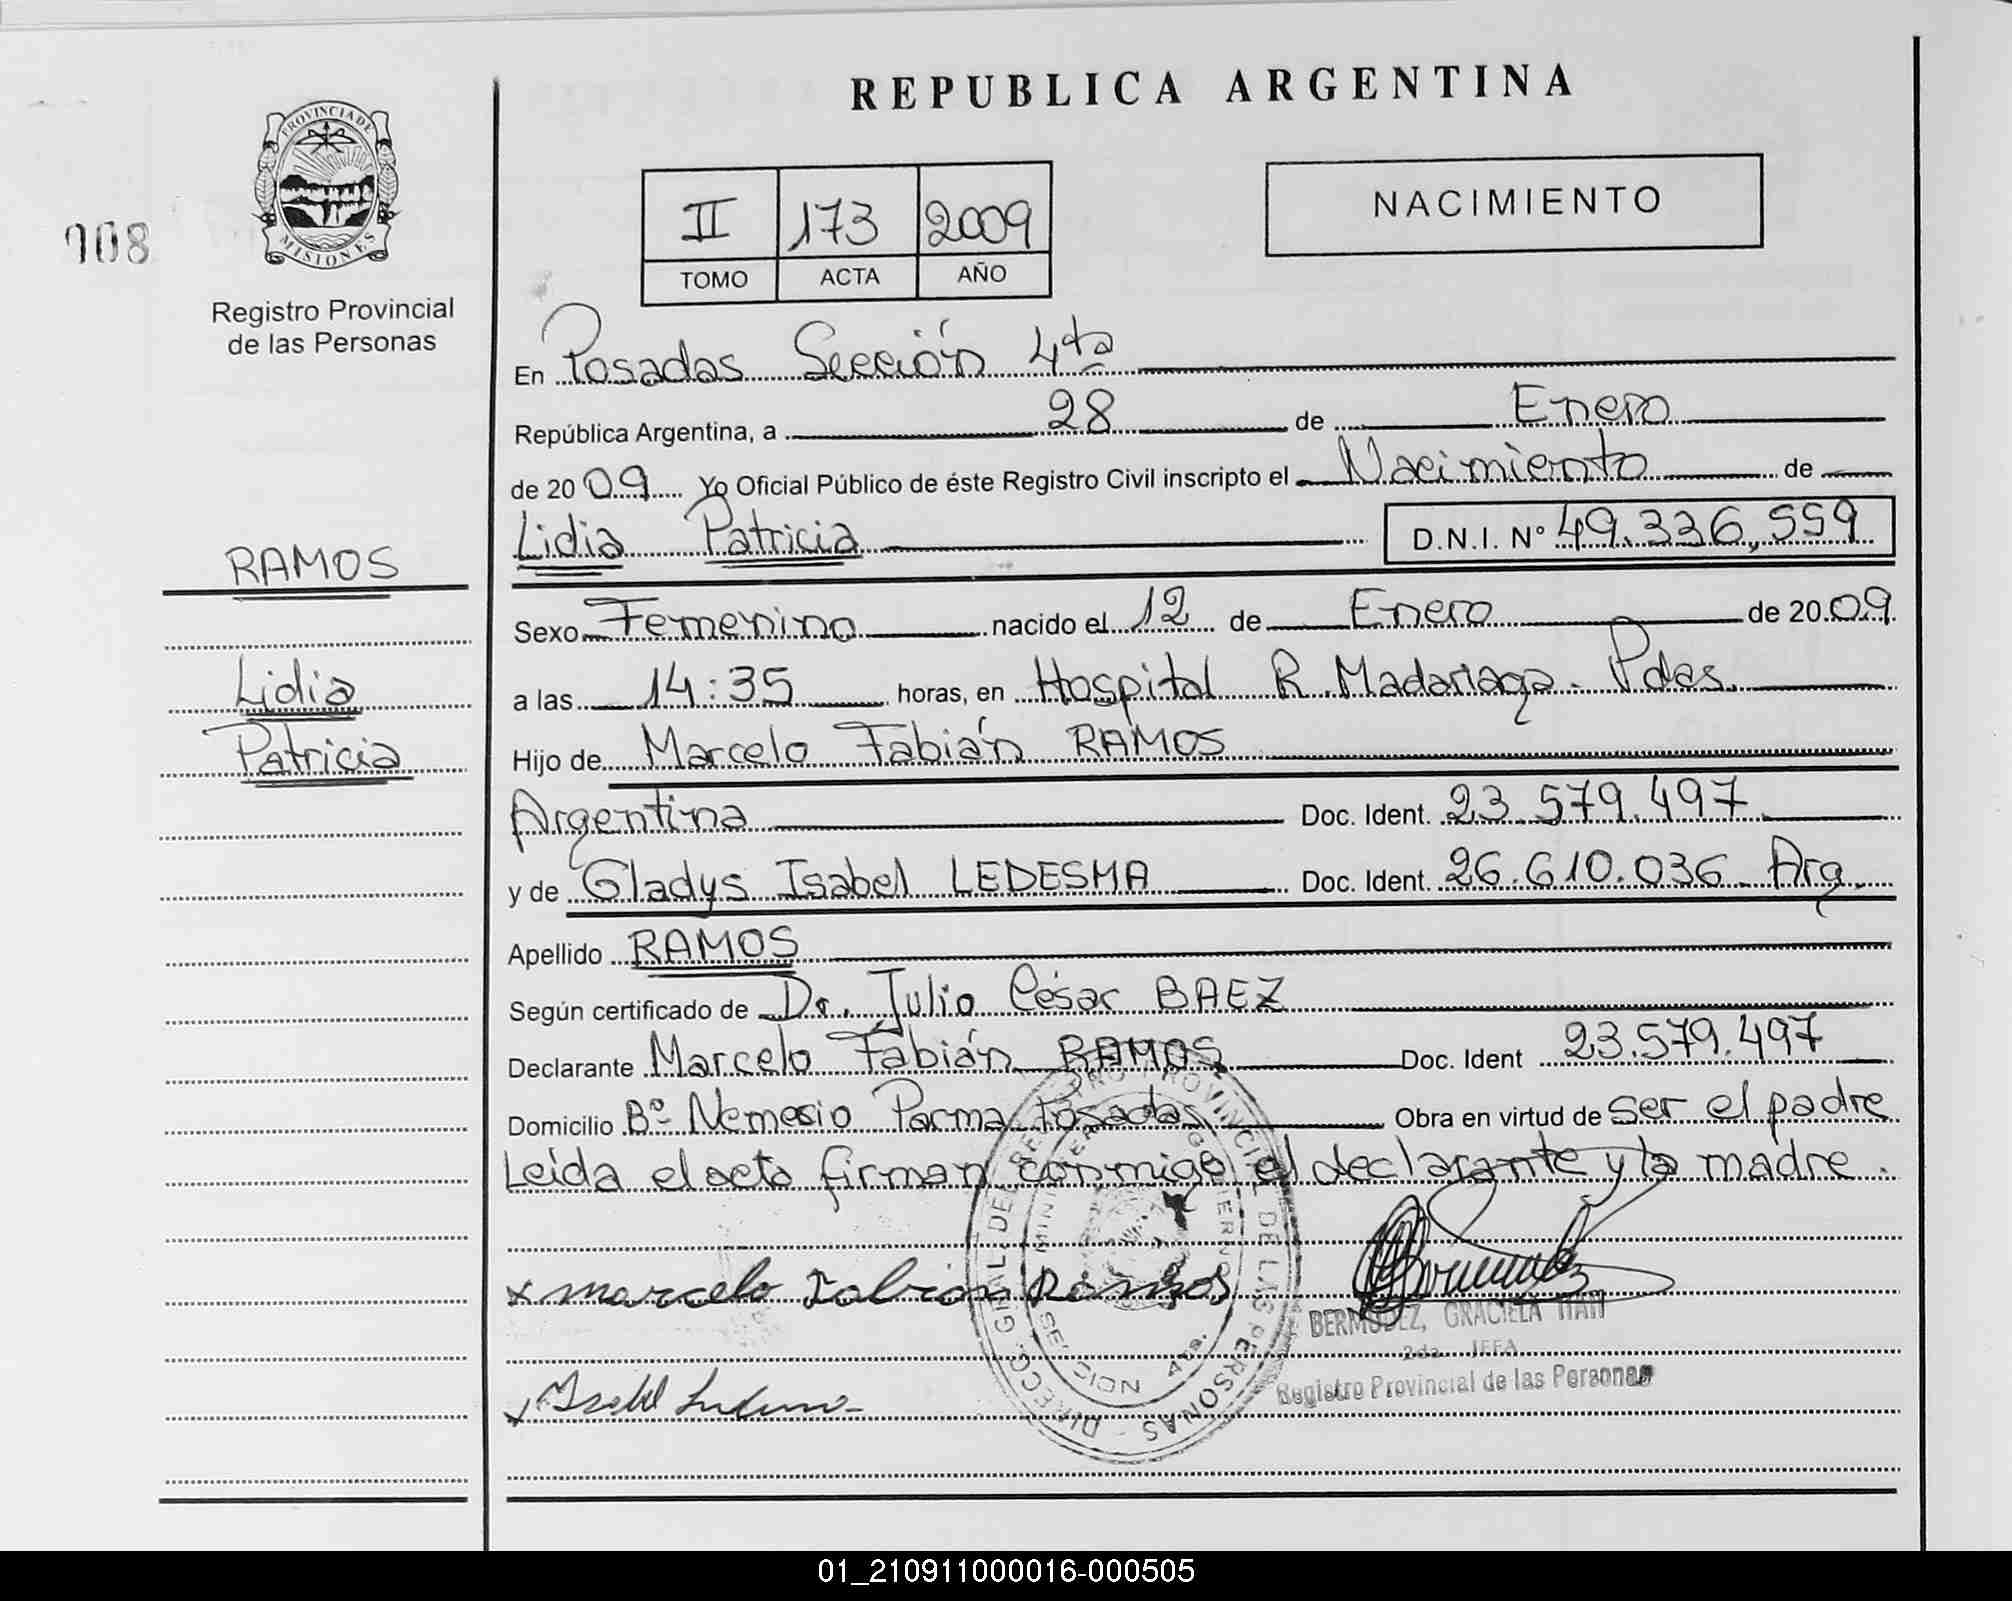 REPUBLICA ARGENTINA
PROVINCIA DE
MISIONES
108
Registro Provincial
de las Personas
NACIMIENTO
II 173 2009
TOMO ACTA AÑO
En Posadas Sección 4ta
República Argentina, a 28 de Enero
de 2009 Yo Oficial Público de éste Registro Civil inscripto el Nacimiento de
Lidia Patricia D.N.I. Nº 49.336,559
RAMOS
Lidia
Patricia
Sexo Femenino nacido el 12 de Enero de 2009
a las 14:35 horas, en Hospital R Madariaga. Pdas.
Hijo de Marcelo Fabián RAMOS
Argentina Doc. Ident. 23.579.497
y de Gladys Isabel LEDESMA Doc. Ident. 26.610.036 Arg.
Apellido RAMOS
Según certificado de Dr. Julio César BAEZ
Declarante Marcelo Fabián RAMOS Doc. Ident 23.579.497
Domicilio Bº Nemesio Parma Posadas Obra en virtud de ser el padre
Leída el acta firman conmigo el declarante y la madre.
x marcelo Fabián Ramos
BERMUDEZ, GRACIELA
2da. JEFA
Registro Provincial de las Personas
Isabel
DIRECC. GRAL. DEL REGISTRO PROVINCIAL DE LAS PERSONAS
01_210911000016-000505